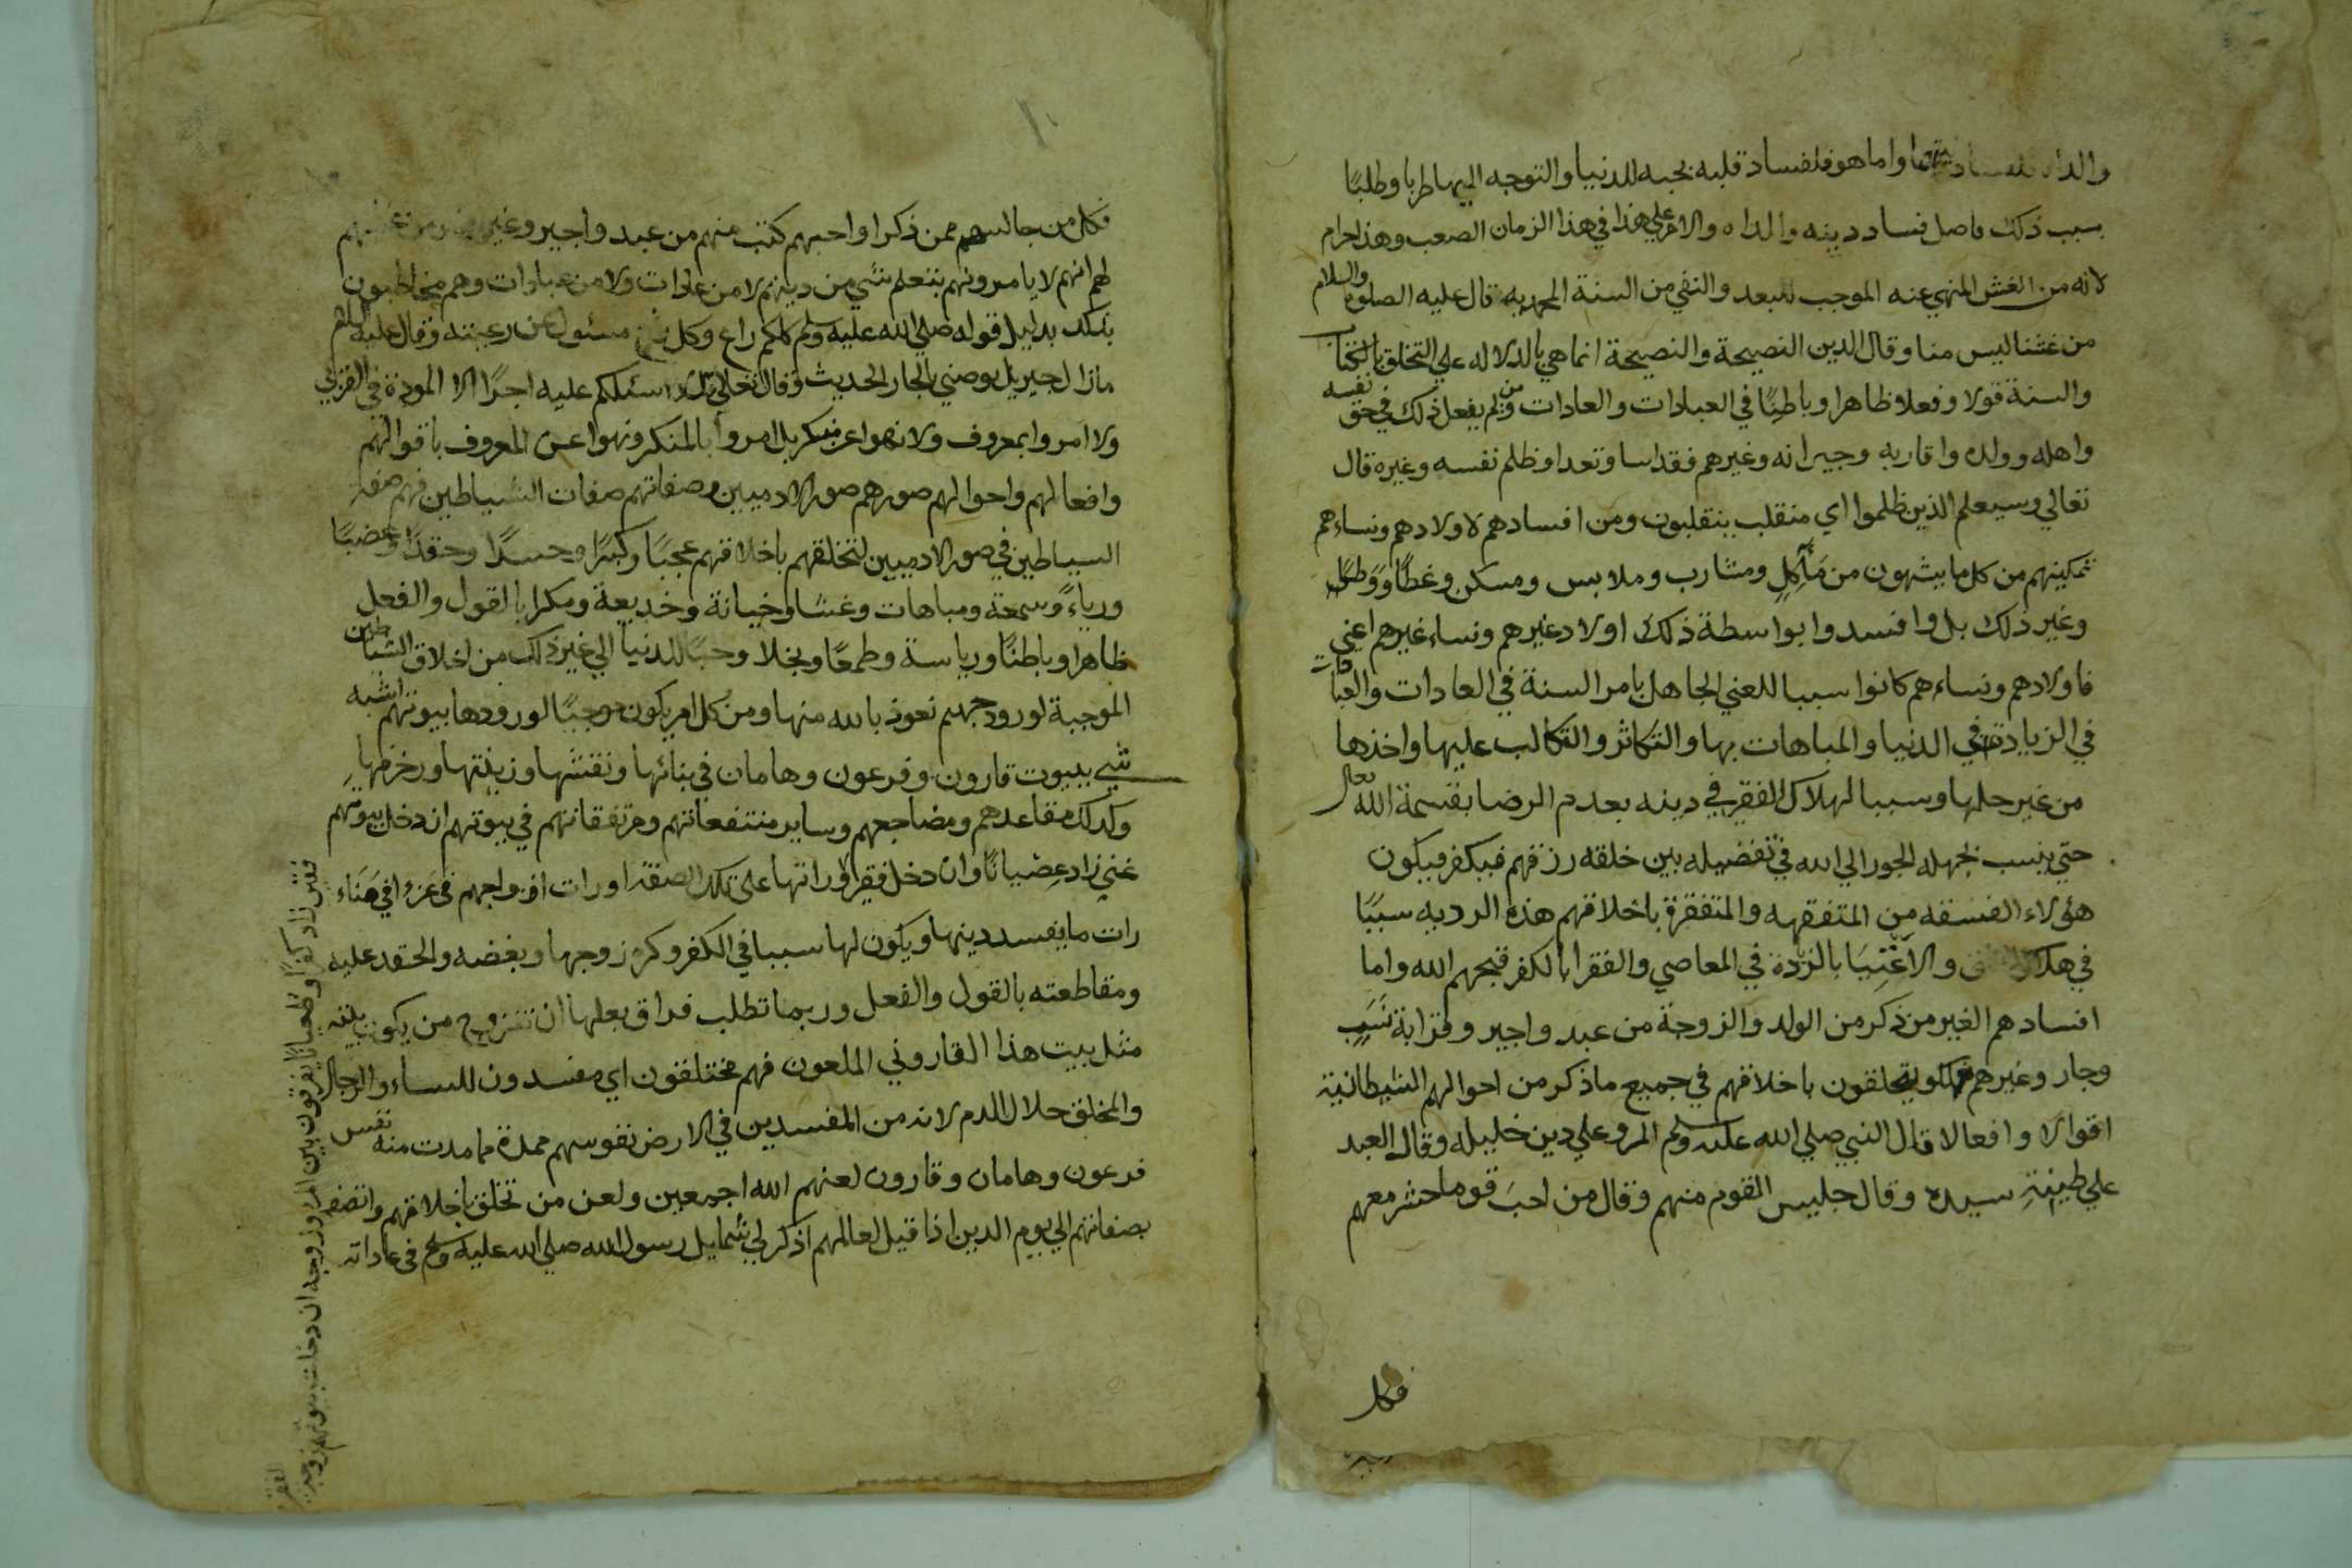 واما هو فلفساد قلبه بحبه للدنيا والتوجه اليها طربا وطلبًا
بسبب ذلك فاصل فساد دينه والداه والامر علي هذا في هذا الزمان الصعب وهذا حرام
لانه من الغش المنهي عنه الموجب للبعد والنفي من السنة المحمديه قال عليه الصلوه والسلام
من غشنا ليس منا وقال الدين النصيحة والنصيحة انما هي بالدلاله علي التخلق بالكتاب
والسنة قولا وفعلا ظاهرا وباطنًا في العبادات والعادات ومن لم يفعل ذلك في حق نفسه
واهله وولده واقاربه وجيرانه وغيرهم فقد اسا وتعدا وظلم نفسه وغيره قال
تعالي وسيعلم الذين ظلموا اي منقلب ينقلبون ومن افسادهم لاولادهم ونساءهم
تمكينهم من كل ما يشهون من مَآكِلٍ ومشارب وملابس ومسكن وغطًا ووطًا
وغير ذلك بل وافسدوا بواسطة ذلك اولاد غيرهم ونساء غيرهم اعني
فاولادهم ونساءهم كانوا سببا للغني الجاهل بامر السنة في العادات والعبادات
في الزيادة في الدنيا والمباهات بها والتكاثر والتكالب عليها واخذها
من غير حلها وسببا لهلاك الفقير في دينه بعدم الرضا بقسمة الله تعالى
حتي ينسب لجهله الجور الي الله في تفضيله بين خلقه رزقهم فيكفر فيكون
هؤلاء الفسقه من المتفقهه والمتفقرة باخلاقهم هذه الرديه سببًا
في هلاك والاغنيا بالزيادة في المعاصي والفقرا بالكفر قبحهم الله واما
افسادهم الغير من ذكر من الولد والزوجة من عبد واجير وقرابة نسب
وجار وغيرهم يتخلقون باخلاقهم في جميع ما ذكر من احوالهم الشيطانية
اقوالا وافعالا قال النبي صلي الله عليه وسلم المرو علي دين خليله وقال العبد
علي طينة سيده وقال جليس القوم منهم وقال من احبَ قوما حشر معهم
فكل
فكل من جالسهم ممن ذكرا واحبهم كتب منهم من عبد واجير
لهم انهم لا يامرونهم بتعلم شي من دينهم لا من عادات ولا من عبادات وهم مخاطبون
بذلك بدليل قوله صلي الله عليه وسلم كلكم راع وكل مسئول عن رعيته وقال عليه السلام
مازال جبريل يوصني بالجار الحديث وقال تعالي قل لا اسئلكم عليه اجرًا الا المودة في القربي
ولا امروا بمعروف ولا نهوا عن منكر بل امروا بالمنكر ونهوا عن المعروف باقوالهم
وافعالهم واحوالهم صورهم صور الادميين وصفاتهم صفات الشياطين فهم صفة
الشياطين في صور الادميين لتخلقهم باخلاقهم عجبًا وكبرًا وحسدًا وحقدًا وغضبًا
ورياءً وسمعة ومباهات وغشا وخيانة وخديعة ومكرا بالقول والفعل
ظاهرا وباطنًا ورياسة وطمعًا وبخلا وحبًا للدنيا الي غير ذلك من اخلاق الشياطين
الموجبة لورود جهنم نعوذ بالله منها ومن كل امر يكون موجبًا لورودها بيوتهم اشبه
شي ببيوت قارون وفرعون وهامان في بنائها ونقشها وزينتها ورخرفها
وكذلك مقاعدهم ومضاجعهم وساير منتفعاتهم ومرتفقاتهم في بيوتهم ان دخل بيوتهم
غني زاد عِصْيانًا وان دخل فقير او راتها علي تلك الصفة او رات ازواجهم في عز او في هناء
رات ما يفسد دينها ويكون لها سببا في الكفر وكره زوجها وبغضه والحقد عليه
ومقاطعته بالقول والفعل وربما تطلب فراق بعلها ان تتزوج من يكون بيته
مثل بيت هذا القاروني الملعون فهم مختلقون اي مفسدون للنساء والرجال
والمخلق حلال الدم لانه من المفسدين في الارض نفوسهم ممدة مما مدت منه نفس
فرعون وهامان وقارون لعنهم الله اجمعين ولعن من تخلق باخلاقهم واتصف
بصفاتهم الي يوم الدين اذا قيل لعالمهم اذكر لي شمايل رسول الله صلي الله عليه وسلم في عاداته
وطغيانا يفرقون بين المرء وزوجه ان دخلت بيوتهم زوجة
الفقير